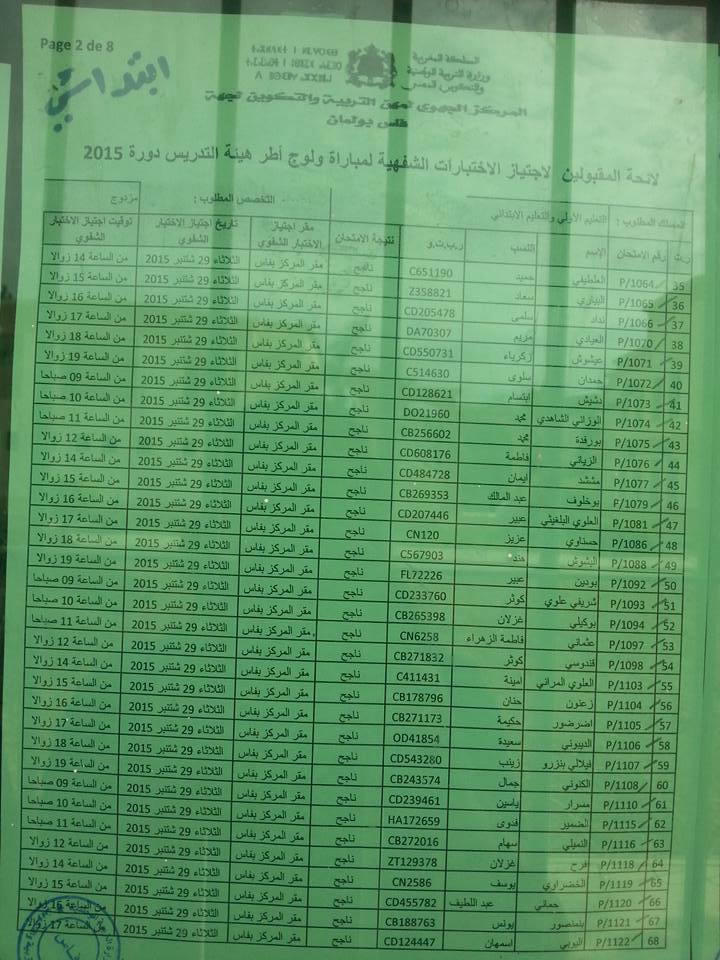 Page 2 de 8
ابتدائي
المملكة المغربية
وزارة التربية الوطنية
والتكوين المهني
المركز الجهوي لمهن التربية والتكوين لجهة
فاس بولمان
لائحة المقبولين لاجتياز الاختبارات الشفهية لمباراة ولوج أطر هيئة التدريس دورة 2015
المسلك المطلوب : التعليم الأولي والتعليم الابتدائي التخصص المطلوب : مزدوج
ر.ت رقم الامتحان الإسم اللقب ر.ب.ت.و نتيجة الامتحان مقر اجتياز الاختبار الشفوي تاريخ اجتياز الاختبار الشفوي توقيت اجتياز الاختبار الشفوي
35 P/1064 العلطيفي حميد C651190 ناجح مقر المركز بفاس الثلاثاء 29 شتنبر 2015 من الساعة 14 زوالا
36 P/1065 البياري سعاد Z358821 ناجح مقر المركز بفاس الثلاثاء 29 شتنبر 2015 من الساعة 15 زوالا
37 P/1066 نداد سلمى CD205478 ناجح مقر المركز بفاس الثلاثاء 29 شتنبر 2015 من الساعة 16 زوالا
38 P/1070 العيادي مريم DA70307 ناجح مقر المركز بفاس الثلاثاء 29 شتنبر 2015 من الساعة 17 زوالا
39 P/1071 عيشوش زكرياء CD550731 ناجح مقر المركز بفاس الثلاثاء 29 شتنبر 2015 من الساعة 18 زوالا
40 P/1072 حمدان سلوى C514630 ناجح مقر المركز بفاس الثلاثاء 29 شتنبر 2015 من الساعة 19 زوالا
41 P/1073 دشيش ابتسام CD128621 ناجح مقر المركز بفاس الثلاثاء 29 شتنبر 2015 من الساعة 09 صباحا
42 P/1074 الوزاني الشاهدي محمد DO21960 ناجح مقر المركز بفاس الثلاثاء 29 شتنبر 2015 من الساعة 10 صباحا
43 P/1075 بورفدة محمد CB256602 ناجح مقر المركز بفاس الثلاثاء 29 شتنبر 2015 من الساعة 11 صباحا
44 P/1076 الزياني فاطمة CD608176 ناجح مقر المركز بفاس الثلاثاء 29 شتنبر 2015 من الساعة 12 زوالا
45 P/1077 مشد ايمان CD484728 ناجح مقر المركز بفاس الثلاثاء 29 شتنبر 2015 من الساعة 14 زوالا
46 P/1079 بوخلوف عبد المالك CB269353 ناجح مقر المركز بفاس الثلاثاء 29 شتنبر 2015 من الساعة 15 زوالا
47 P/1081 العلوي البلغيثي عبير CD207446 ناجح مقر المركز بفاس الثلاثاء 29 شتنبر 2015 من الساعة 16 زوالا
48 P/1086 حسناوي عزيز CN120 ناجح مقر المركز بفاس الثلاثاء 29 شتنبر 2015 من الساعة 17 زوالا
49 P/1088 البشوش هند C567903 ناجح مقر المركز بفاس الثلاثاء 29 شتنبر 2015 من الساعة 18 زوالا
50 P/1092 بودين عبير FL72226 ناجح مقر المركز بفاس الثلاثاء 29 شتنبر 2015 من الساعة 19 زوالا
51 P/1093 شريفي علوي كوثر CD233760 ناجح مقر المركز بفاس الثلاثاء 29 شتنبر 2015 من الساعة 09 صباحا
52 P/1094 بوكيلي غزلان CB265398 ناجح مقر المركز بفاس الثلاثاء 29 شتنبر 2015 من الساعة 10 صباحا
53 P/1097 عثماني فاطمة الزهراء CN6258 ناجح مقر المركز بفاس الثلاثاء 29 شتنبر 2015 من الساعة 11 صباحا
54 P/1098 قندوسي كوثر CB271832 ناجح مقر المركز بفاس الثلاثاء 29 شتنبر 2015 من الساعة 12 زوالا
55 P/1103 العلوي المراني امينة C411431 ناجح مقر المركز بفاس الثلاثاء 29 شتنبر 2015 من الساعة 14 زوالا
56 P/1104 زعنون حنان CB178796 ناجح مقر المركز بفاس الثلاثاء 29 شتنبر 2015 من الساعة 15 زوالا
57 P/1105 اضرضور حكيمة CB271173 ناجح مقر المركز بفاس الثلاثاء 29 شتنبر 2015 من الساعة 16 زوالا
58 P/1106 الديبوني سعيدة OD41854 ناجح مقر المركز بفاس الثلاثاء 29 شتنبر 2015 من الساعة 17 زوالا
59 P/1107 فيلالي بنزرو زينب CD543280 ناجح مقر المركز بفاس الثلاثاء 29 شتنبر 2015 من الساعة 18 زوالا
60 P/1108 الكنوني جمال CB243574 ناجح مقر المركز بفاس الثلاثاء 29 شتنبر 2015 من الساعة 19 زوالا
61 P/1110 مسرار ياسين CD239461 ناجح مقر المركز بفاس الثلاثاء 29 شتنبر 2015 من الساعة 09 صباحا
62 P/1115 الضمير فدوى HA172659 ناجح مقر المركز بفاس الثلاثاء 29 شتنبر 2015 من الساعة 10 صباحا
63 P/1116 النميلي سهام CB272016 ناجح مقر المركز بفاس الثلاثاء 29 شتنبر 2015 من الساعة 11 صباحا
64 P/1118 فرح غزلان ZT129378 ناجح مقر المركز بفاس الثلاثاء 29 شتنبر 2015 من الساعة 12 زوالا
65 P/1119 الخضراوي يوسف CN2586 ناجح مقر المركز بفاس الثلاثاء 29 شتنبر 2015 من الساعة 14 زوالا
66 P/1120 حماني عبد اللطيف CD455782 ناجح مقر المركز بفاس الثلاثاء 29 شتنبر 2015 من الساعة 15 زوالا
67 P/1121 بلمنصور يونس CB188763 ناجح مقر المركز بفاس الثلاثاء 29 شتنبر 2015 من الساعة 16 زوالا
68 P/1122 اليوبي اسمهان CD124447 ناجح مقر المركز بفاس الثلاثاء 29 شتنبر 2015 من الساعة 17 زوالا
فاس